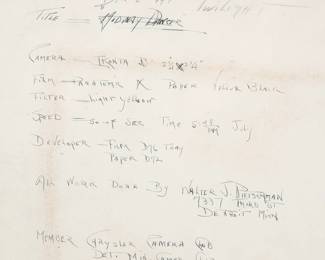 Twilight
Title —
Camera — Ikonta B 2 1/4 x 3 1/4"
Film — Panatomic X Paper Velour Black
Filter — Light Yellow
Speed — Sec Time 5:15 PM July
Developer — Film D76 Tray
Paper D72
All Work Done By Walter J.
7337 Third St
Detroit Mich
Member Chrysler Camera Club
Det. Camera Club